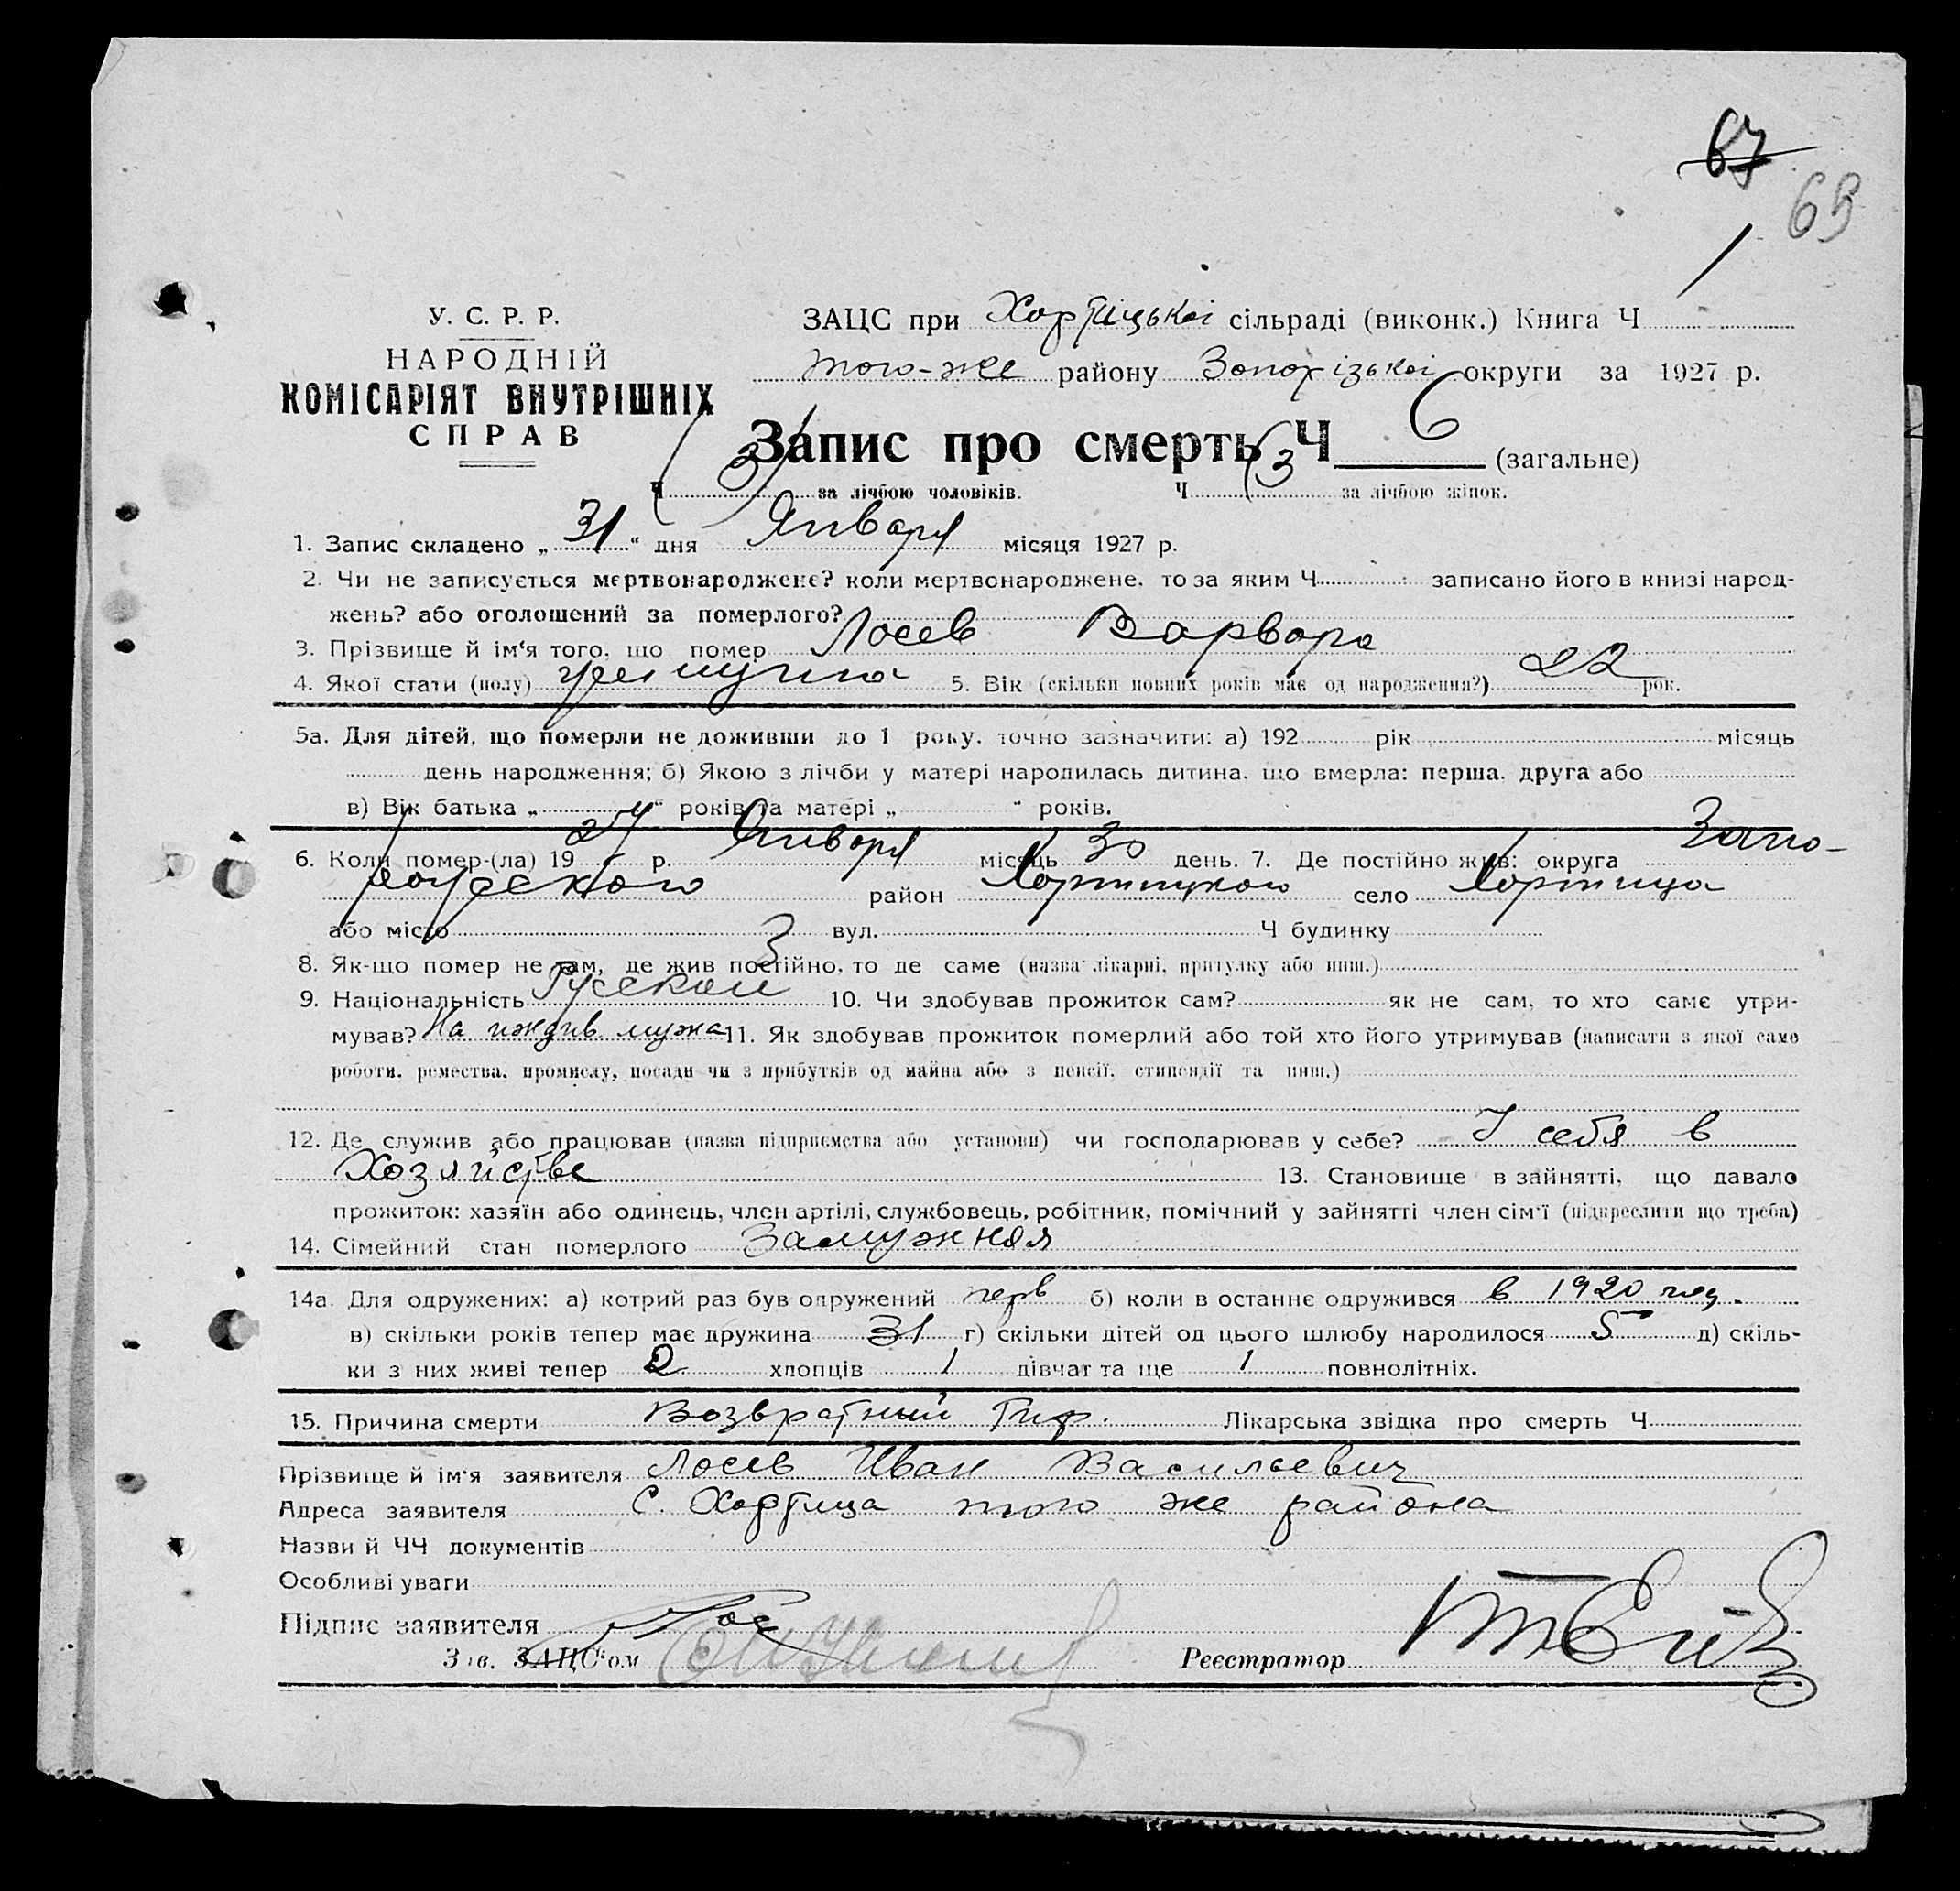 67
69
1
У. С. Р. Р.
НАРОДНІЙ
КОМІСАРІЯТ ВНУТРІШНІХ
СПРАВ
ЗАЦС при Хортицької сільраді (виконк.) Книга Ч
того-же району Запорізької округи за 1927 р.
Запис про смерть Ч 6 (загальне)
Ч 3 за лічбою чоловіків. Ч 3 за лічбою жінок.
1. Запис складено „31" дня Января місяця 1927 р.
2. Чи не записується мертвонароджене? коли мертвонароджене, то за яким Ч записано його в книзі народ-
жень? або оголошений за померлого?
3. Прізвище й ім'я того, що помер Лосев Варвара
4. Якої стати (полу) 5. Вік (скільки повних років має од народження?) 22 рок.
5а. Для дітей, що померли не доживши до 1 року, точно зазначити: а) 192 рік місяць
день народження; б) Якою з лічби у матері народилась дитина, що вмерла: перша, друга або
в) Вік батька „ " років та матері „ " років.
6. Коли помер-(ла) 1927 р. Января місяць 30 день. 7. Де постійно жив: округа Запо-
рожского район Хортицкого село Хортица
або місто вул. Ч будинку
8. Як-що помер не там, де жив постійно, то де саме (назва лікарні, притулку або инш.)
9. Національність Русская 10. Чи здобував прожиток сам? як не сам, то хто саме утри-
мував? На иждив. мужа 11. Як здобував прожиток померлий або той хто його утримував (написати з якої саме
роботи, ремества, промислу, посади чи з прибутків од майна або з пенсії, стипендії та инш.)
12. Де служив або працював (назва підприємства або установи) чи господарював у себе? У себя в
Хозяйстве 13. Становище в зайнятті, що давало
прожиток: хазяїн або одинець, член артілі, службовець, робітник, помічний у зайнятті член сім'ї (підкреслити що треба)
14. Сімейний стан померлого Замужняя
14а Для одружених: а) котрий раз був одружений перв б) коли в останнє одружився в 1920 год.
в) скільки років тепер має дружина 31 г) скільки дітей од цього шлюбу народилося 5 д) скіль-
ки з них живі тепер 2 хлопців 1 дівчат та ще 1 повнолітніх.
15. Причина смерти Возвратный Тиф. Лікарська звідка про смерть Ч
Прізвище й ім'я заявителя Лосев Иван Васильевич
Адреса заявителя С. Хортица того же района
Назви й ЧЧ документів
Особливі уваги
Підпис заявителя Лос
Зав. ЗАЦС'ом
Реєстратор